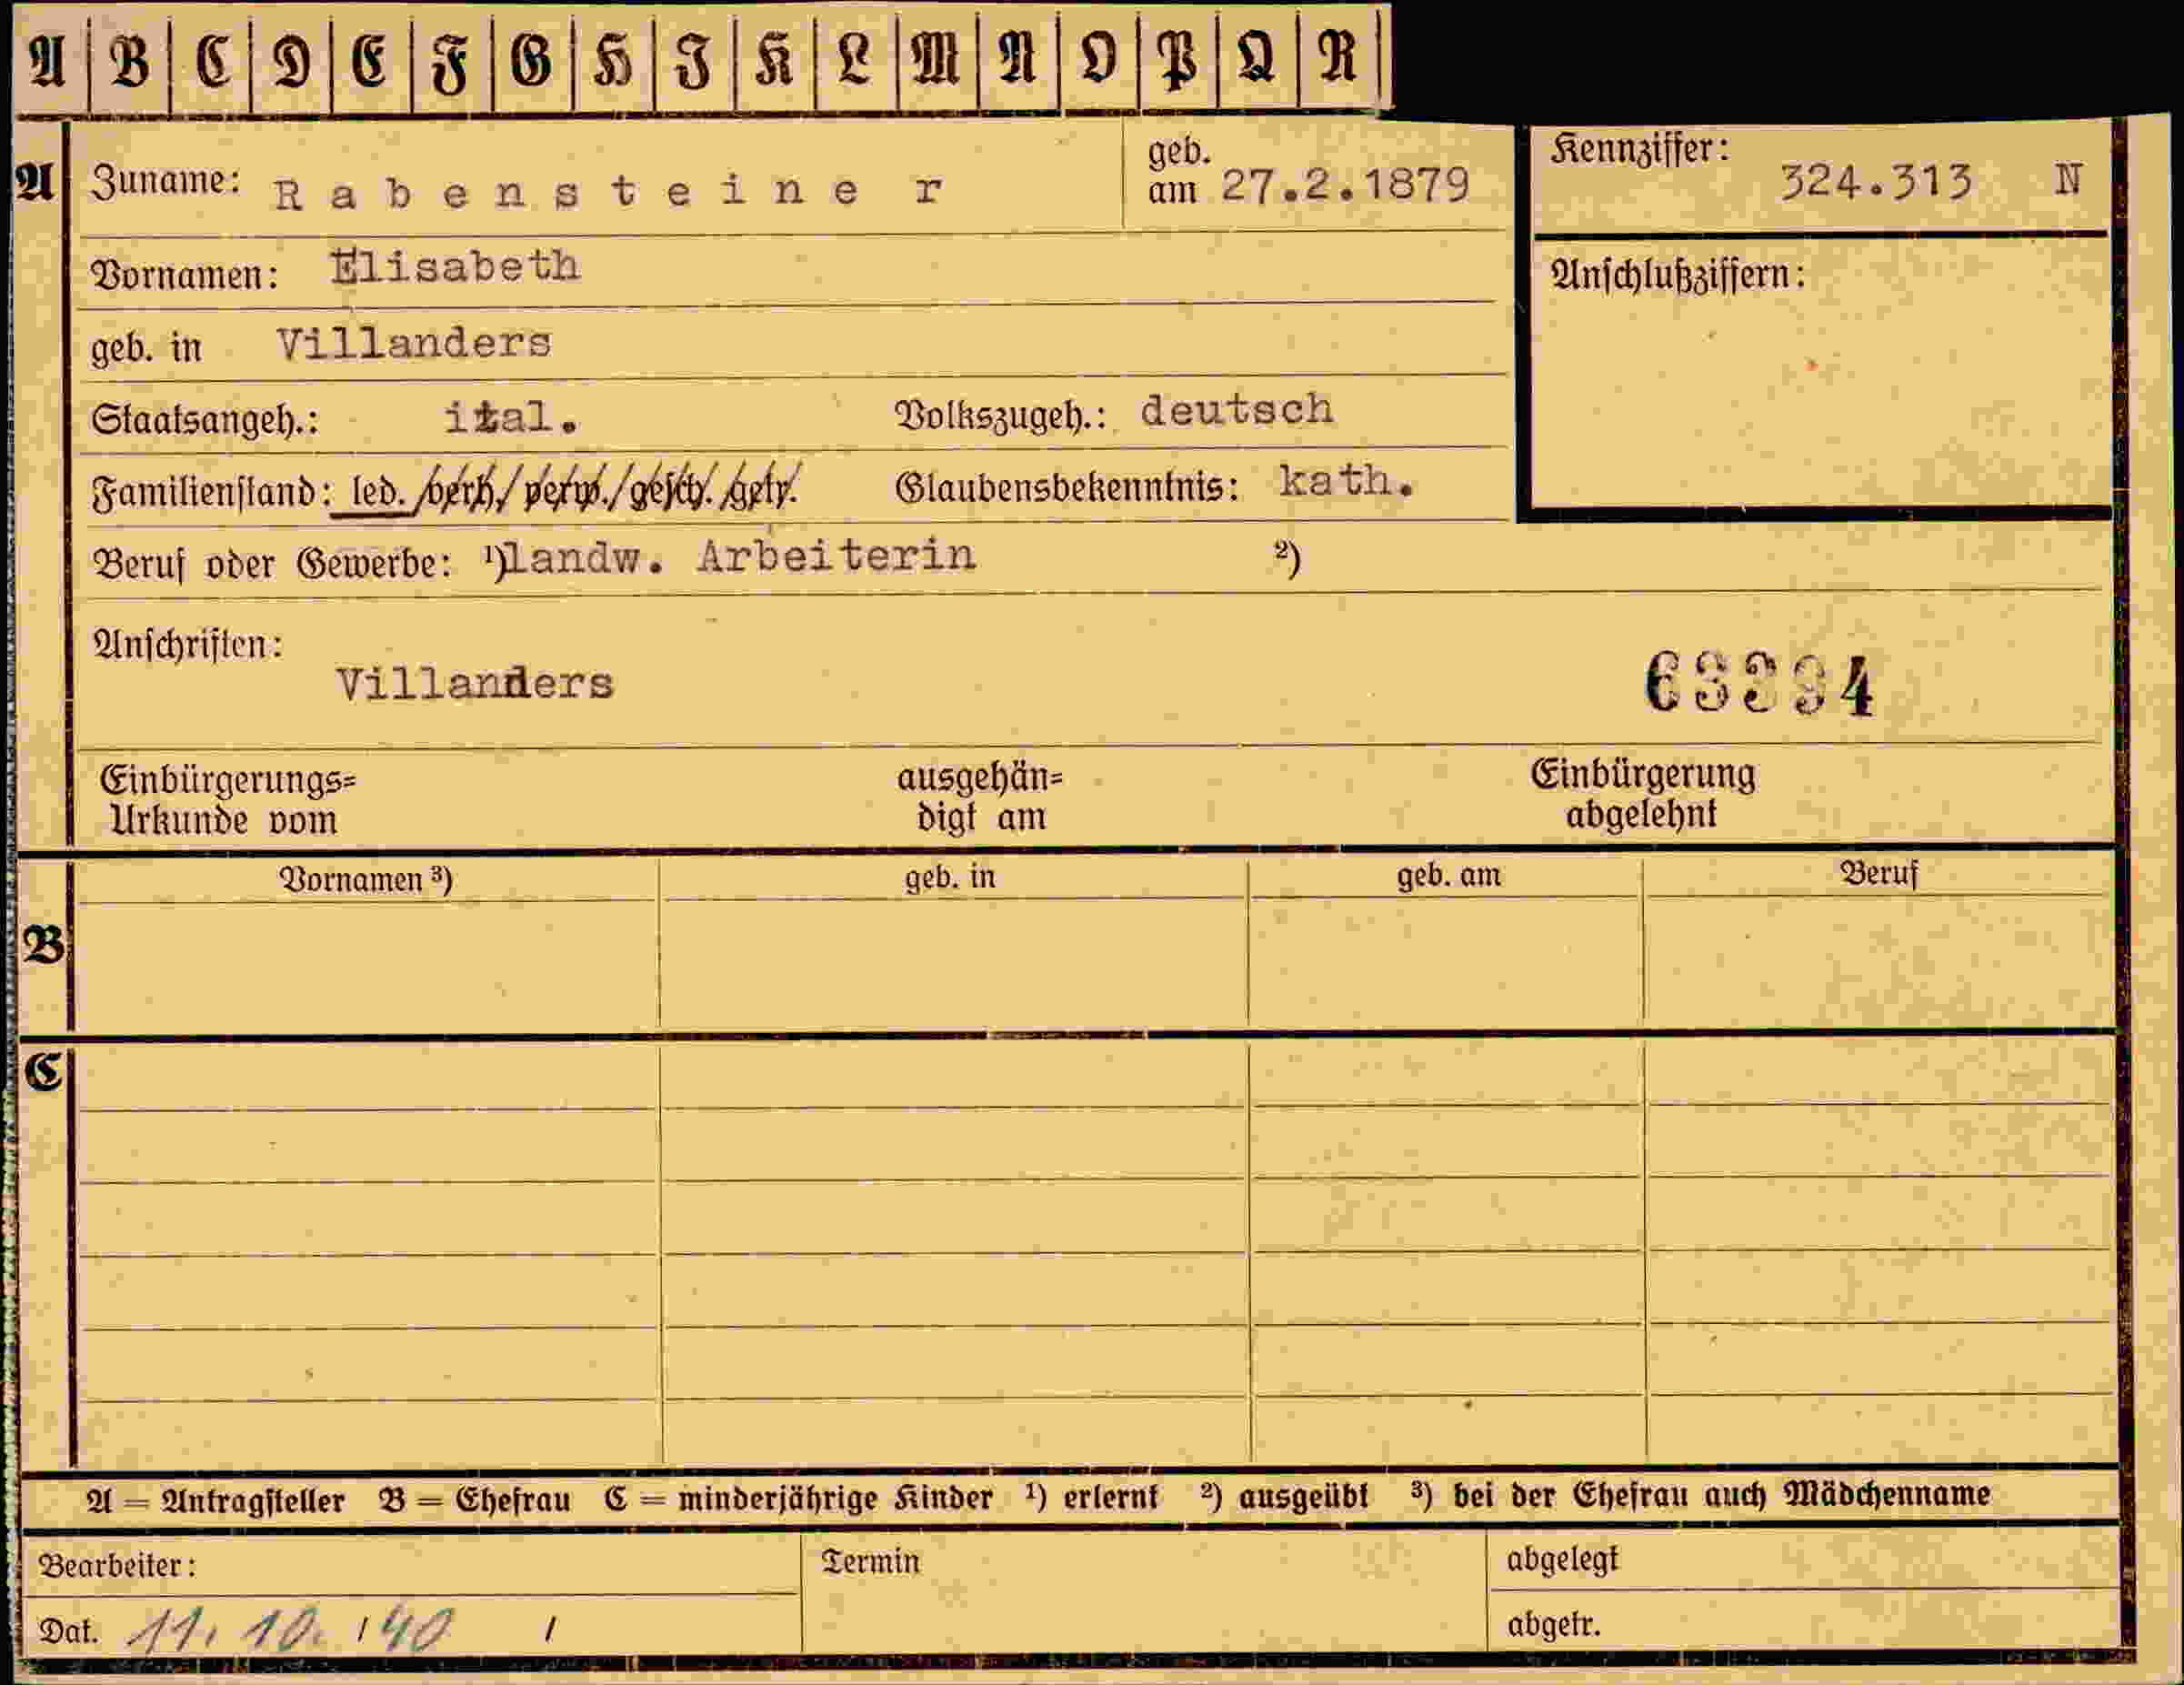 A B C D E F G H I K L M N O P Q R
A Zuname: Rabensteiner geb. am 27.2.1879 Kennziffer: 324.313 N
Vornamen: Elisabeth Anschlußziffern:
geb. in Villanders
Staatsangeh.: ital. Volkszugeh.: deutsch
Familienstand: led. /verh./ verw./gesch./getr. Glaubensbekenntnis: kath.
Beruf oder Gewerbe: ¹) landw. Arbeiterin ²)
Anschriften:
Villanders
63394
Einbürgerungs= ausgehän= Einbürgerung
Urkunde vom digt am abgelehnt
Vornamen ³) geb. in geb. am Beruf
B
C
A = Antragsteller B = Ehefrau C = minderjährige Kinder ¹) erlernt ²) ausgeübt ³) bei der Ehefrau auch Mädchenname
Bearbeiter: Termin abgelegt
Dat. 11. 10. / 40 / abgetr.